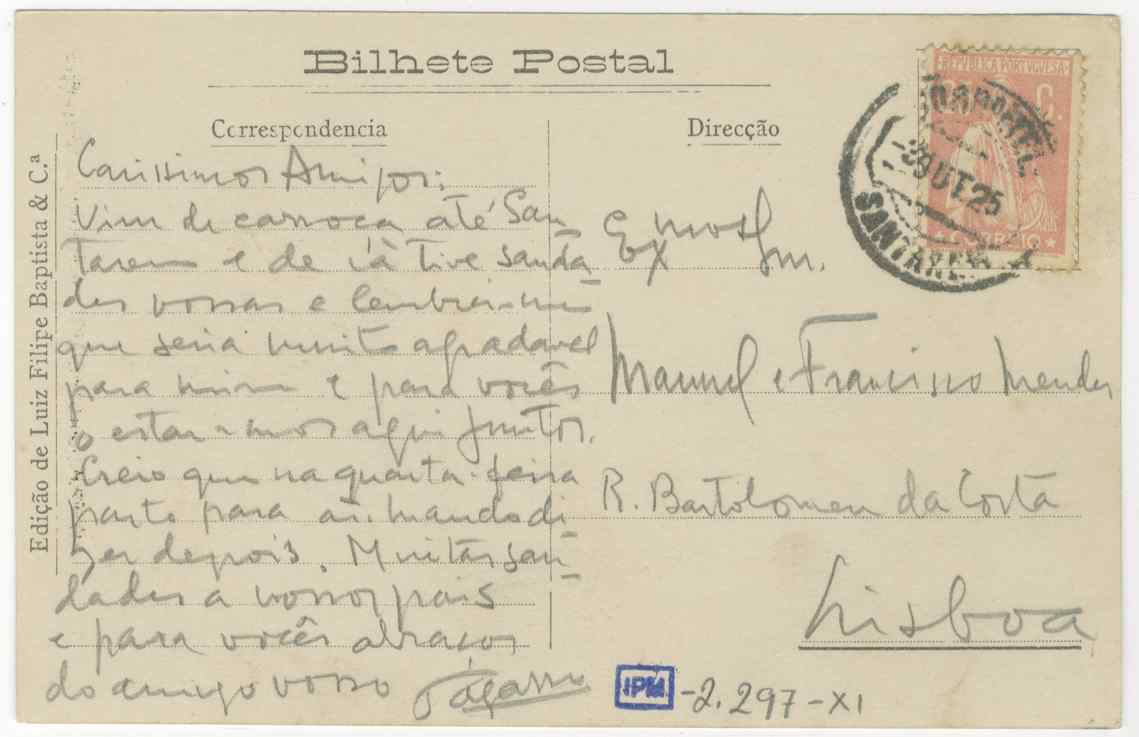 Bilhete Postal
Correspondencia
Carissimos Amigos:
Vim de carroça até San
tarem e de lá tive sauda
des vossas e lembrei-me
que seria muito agradavel
para mim e para vocês
o estar-mos aqui juntos.
Creio que na quarta-feira
parto para aí. Mando di
zer depois. Muitas sau
dades a vossos pais
e para vocês abraços
do amigo vosso
Direcção
Exmos Snr.
Manuel e Francisco Mendes
R. Bartolomeu da Costa
Lisboa
REPUBLICA PORTUGUESA
C.
CORREIO
-2 OUT. 25
SANTAREM
Edição de Luiz Filipe Baptista & C.ª
IPM -2.297-XI